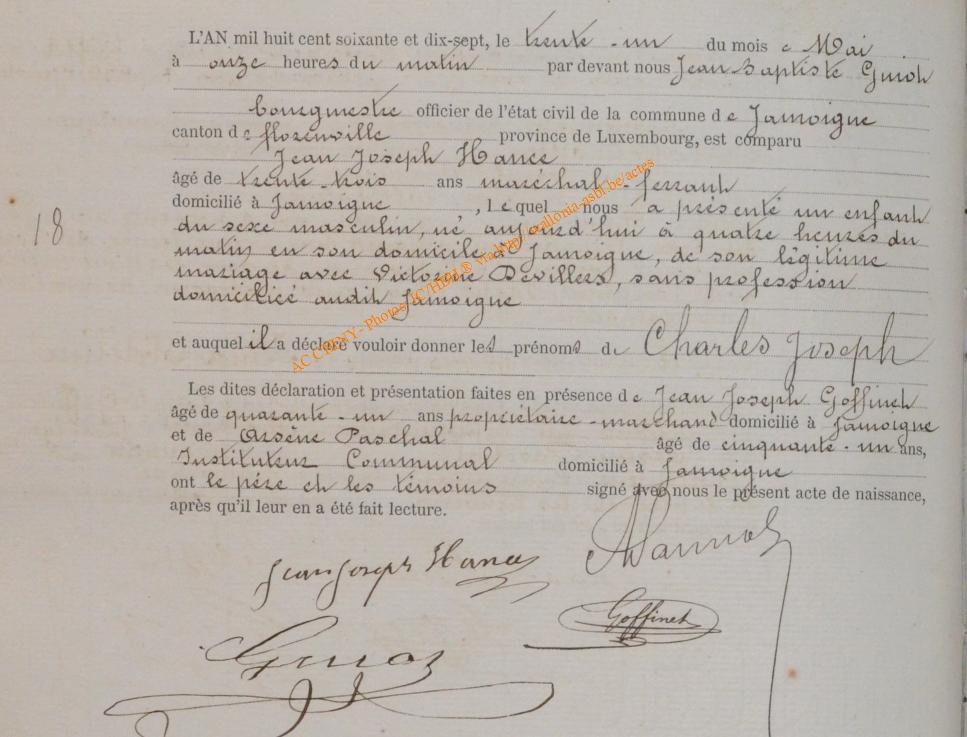 L'AN mil huit cent soixante et dix-sept, le trente-un du mois de Mai
à onze heures du matin par devant nous Jean Baptiste Guiot
bourgmestre officier de l'état civil de la commune de Jamoigne
canton de florenville province de Luxembourg, est comparu
Jean Joseph Hance
âgé de trente-trois ans maréchal-ferrant
domicilié à Jamoigne, lequel nous a présenté un enfant
18
du sexe masculin, né aujourd'hui à quatre heures du
matin en son domicile à Jamoigne, de son légitime
mariage avec Victorine Devillers, sans profession
domiciliée audit Jamoigne
et auquel il a déclaré vouloir donner les prénoms de Charles Joseph
Les dites déclaration et présentation faites en présence de Jean Joseph Goffinet
âgé de quarante-un ans propriétaire-marchand domicilié à Jamoigne
et de Arsène Paschal âgé de cinquante-un ans,
Instituteur Communal domicilié à Jamoigne
ont le père et les témoins signé avec nous le présent acte de naissance,
après qu'il leur en a été fait lecture.
Jean Joseph Hance
Goffinet
Guiot